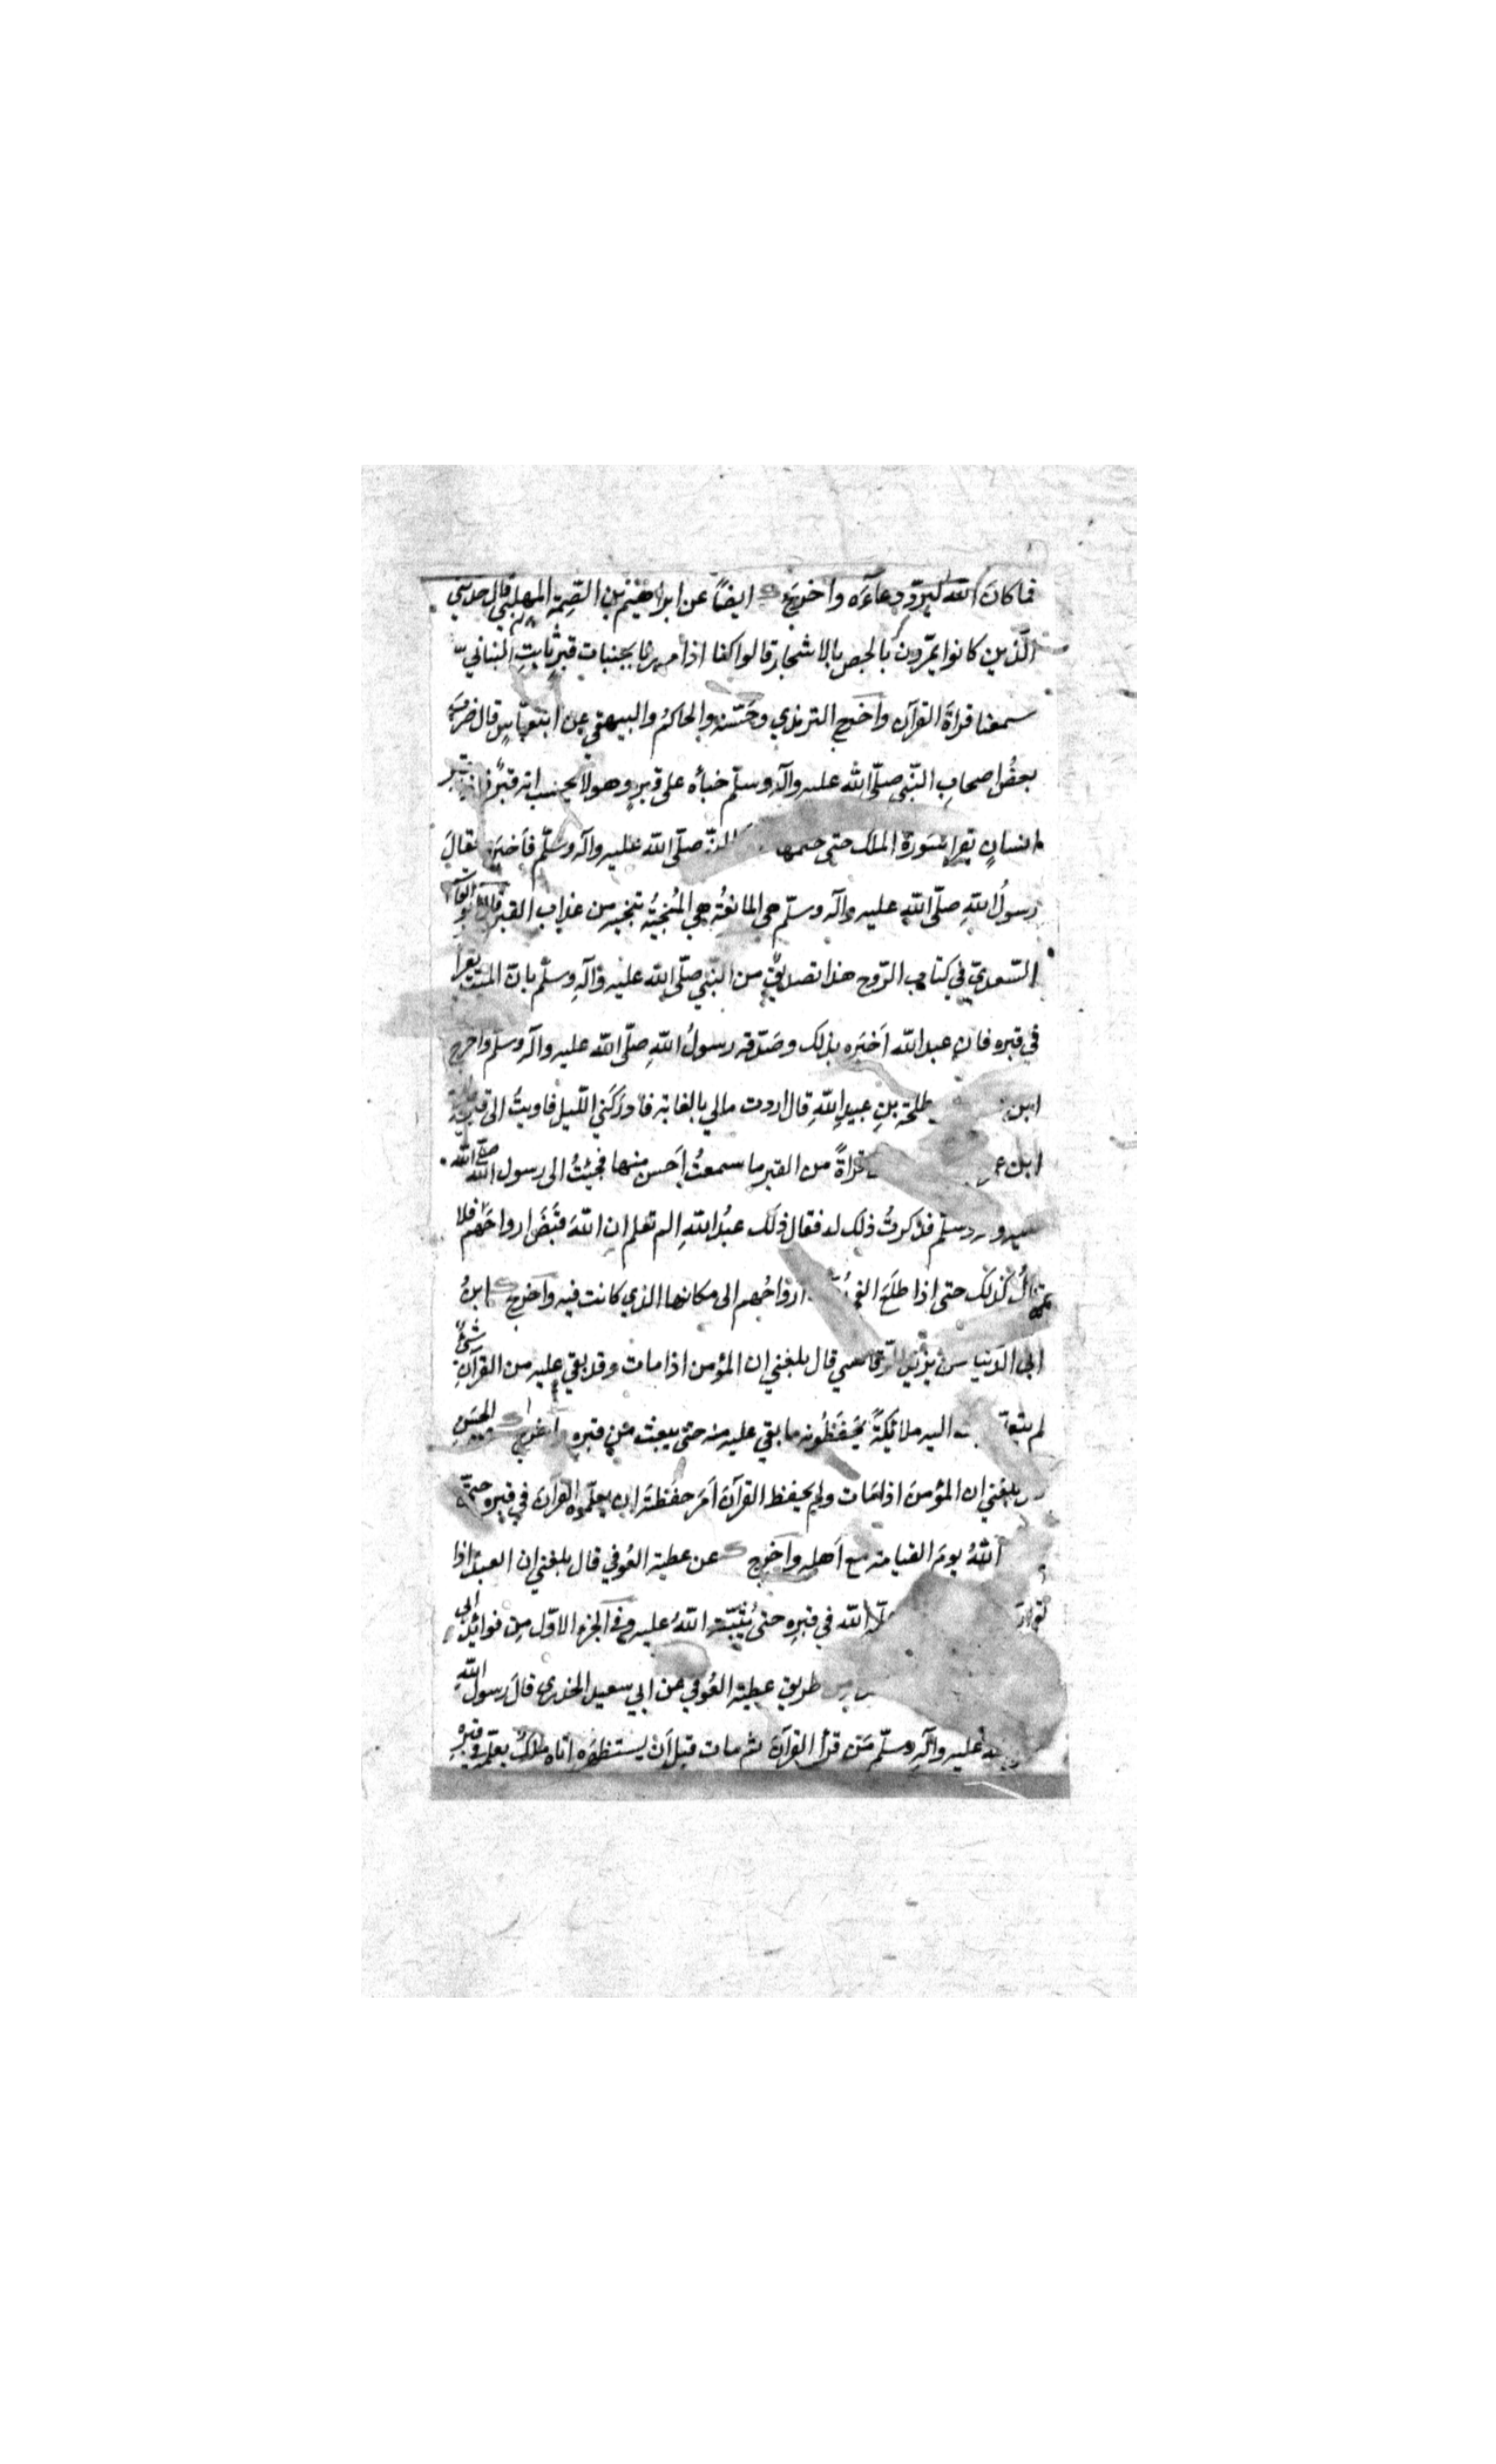 فما كانَ الله ليردّ دعآءَه واخرجَ ايضاً عن ابراهيم بن الصِمة المهلبي قال حدثني
الّذين كانوا يمرّون بالجص بالاشجار قالوا كنا اذا مررنا بجنبات قبرِ ثابتِ البناني
سمعنا قراةَ القرآن واخرج الترمذي وحَسّنه والحاكمُ والبيهقي عن ابن عباسٍ قال ضربَ
بعضُ اصحابِ النّبي صلّى الله عليه وآله وسلّم خبأه على قبرٍ وهو لا يحسب انه قبرٌ فاذا قبر
انسانٍ يقرا سُورةَ الملك حتى ختمها صلّى الله عليه وآله وسلّم فاَخبره فقالَ
رسولُ اللهِ صلّى اللهِ عليه وآله وسلّم هى المانعةُ هي المُنجيةُ تنجيه من عذاب القبر قال ابو القاسم
السّعدي في كتاب الرّوح هذا تصديقٌ من النّبي صلّى الله عليه وآلهِ وسلّم بانّ الميت يقرأ
في قبره فان عبد الله اَخبَره بذلك وصَدّقه رسولُ اللهِ صلّى الله عليه وآله وسلّم واخرج
ابن طلحة بنِ عبيدِ اللهِ قال اردت مالي بالغابة فادرَكَني اللّيل فاويتُ الى قبر
ابن قراةً من القبر ما سمعتُ اَحسن منها فجئتُ الى رسول الله صلّى الله
وسلّم فذكرتُ ذلك له فقال ذلك عبدُ اللهِ الم تعلم ان اللهَ قبَضَ ارواحَهُم فلا
كذلك حتى اذا طلَعَ ارواحُهم الى مكانها الذي كانت فيه واخرج ابنُ
ابى الدنيا عن يزيد الرّقاشي قال بلغني ان المؤمن اذا مات وقد بقي عليه من القرآنِ شئٌ
لم اليه ملائكةً يَحفَظُونه ما بقي عليه منه حتى يبعث من قبره واخرج الحسَنِ
بلغني ان المؤمنَ اذا مَات ولم يحفظ القرآنَ اَمرَ حفَظتَه ان يعلّموه القرآنَ في قبره حتى
اللهُ يومَ القيامة مع اَهله واخرج عن عطية العُوفي قال بلغني ان العبدَ اذا
الله في قبرِه حتى يُثبّته اللهُ عليه وفي الجزء الاوّل من فوائد ابى
من طريق عطية العُوفي عن ابي سعيد الخدري قالَ رسول اللهِ
عليه وآلهِ وسلّم مَن قرأ القرآنَ ثم مات قبل اَن يستظهرَه اتاه مَلكٌ يعلّمه في قبرِه